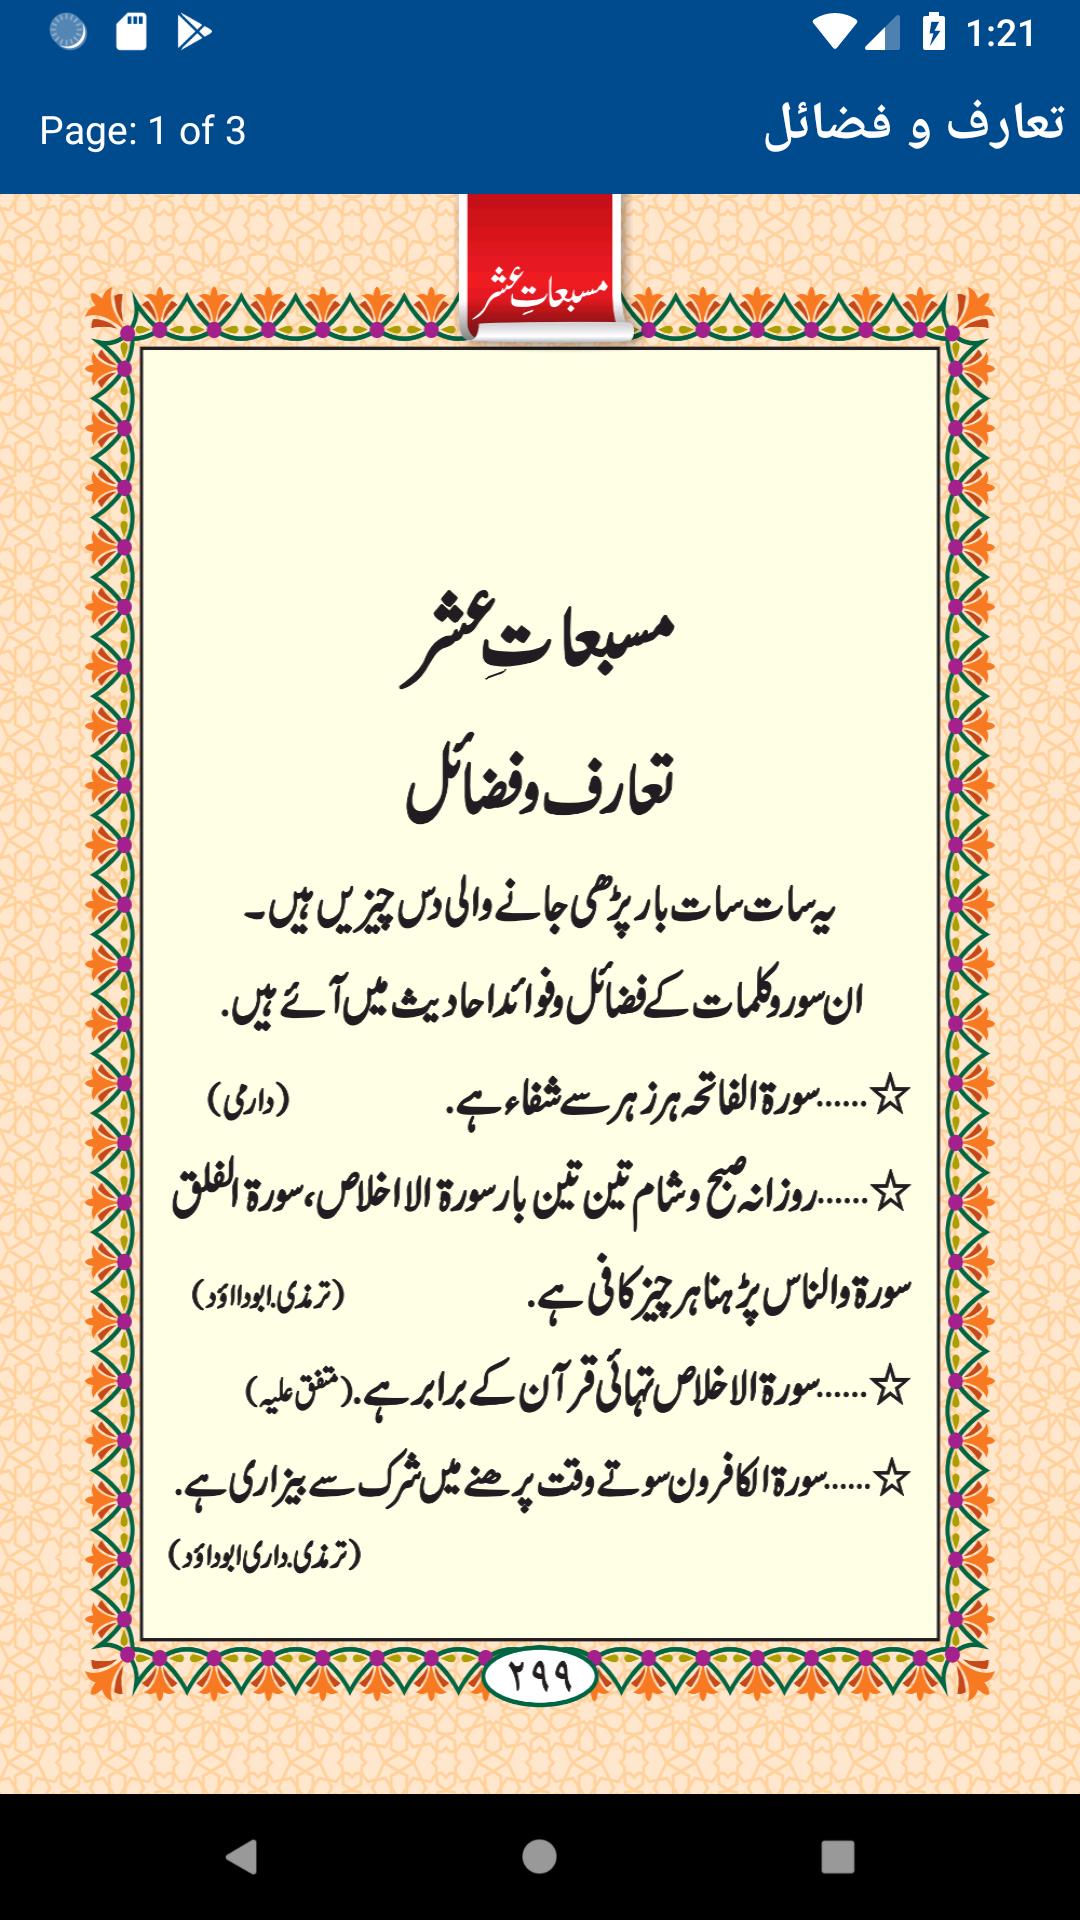 1:21
Page: 1 of 3
تعارف و فضائل
مسبعاتِ عشر
مسبعاتِ عشر
تعارف و فضائل
یہ سات سات بار پڑھی جانے والی دس چیزیں ہیں۔
ان سور و کلمات کے فضائل و فوائد احادیث میں آئے ہیں.
☆......سورۃ الفاتحہ ہر زہر سے شفاء ہے. (دارمی)
☆......روزانہ صبح و شام تین تین بار سورۃ الا اخلاص، سورۃ الفلق
سورۃ والناس پڑہنا ہر چیز کافی ہے. (ترمذی.ابودااؤد)
☆......سورۃ الاخلاص تہائی قرآن کے برابر ہے.(متفق علیہ)
☆......سورۃ الکافرون سوتے وقت پرھنے میں شرک سے بیزاری ہے.
(ترمذی.داری ابوداؤد)
۲۹۹